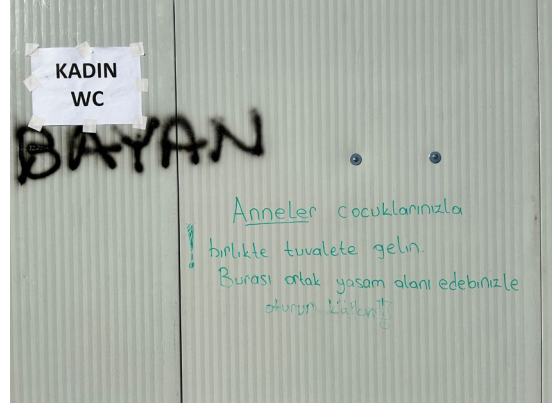 KADIN
WC
BAYAN
Anneler cocuklarınızla
! birlikte tuvalete gelin.
Burası ortak yasam alanı edebinizle
oturun Lütfen!!